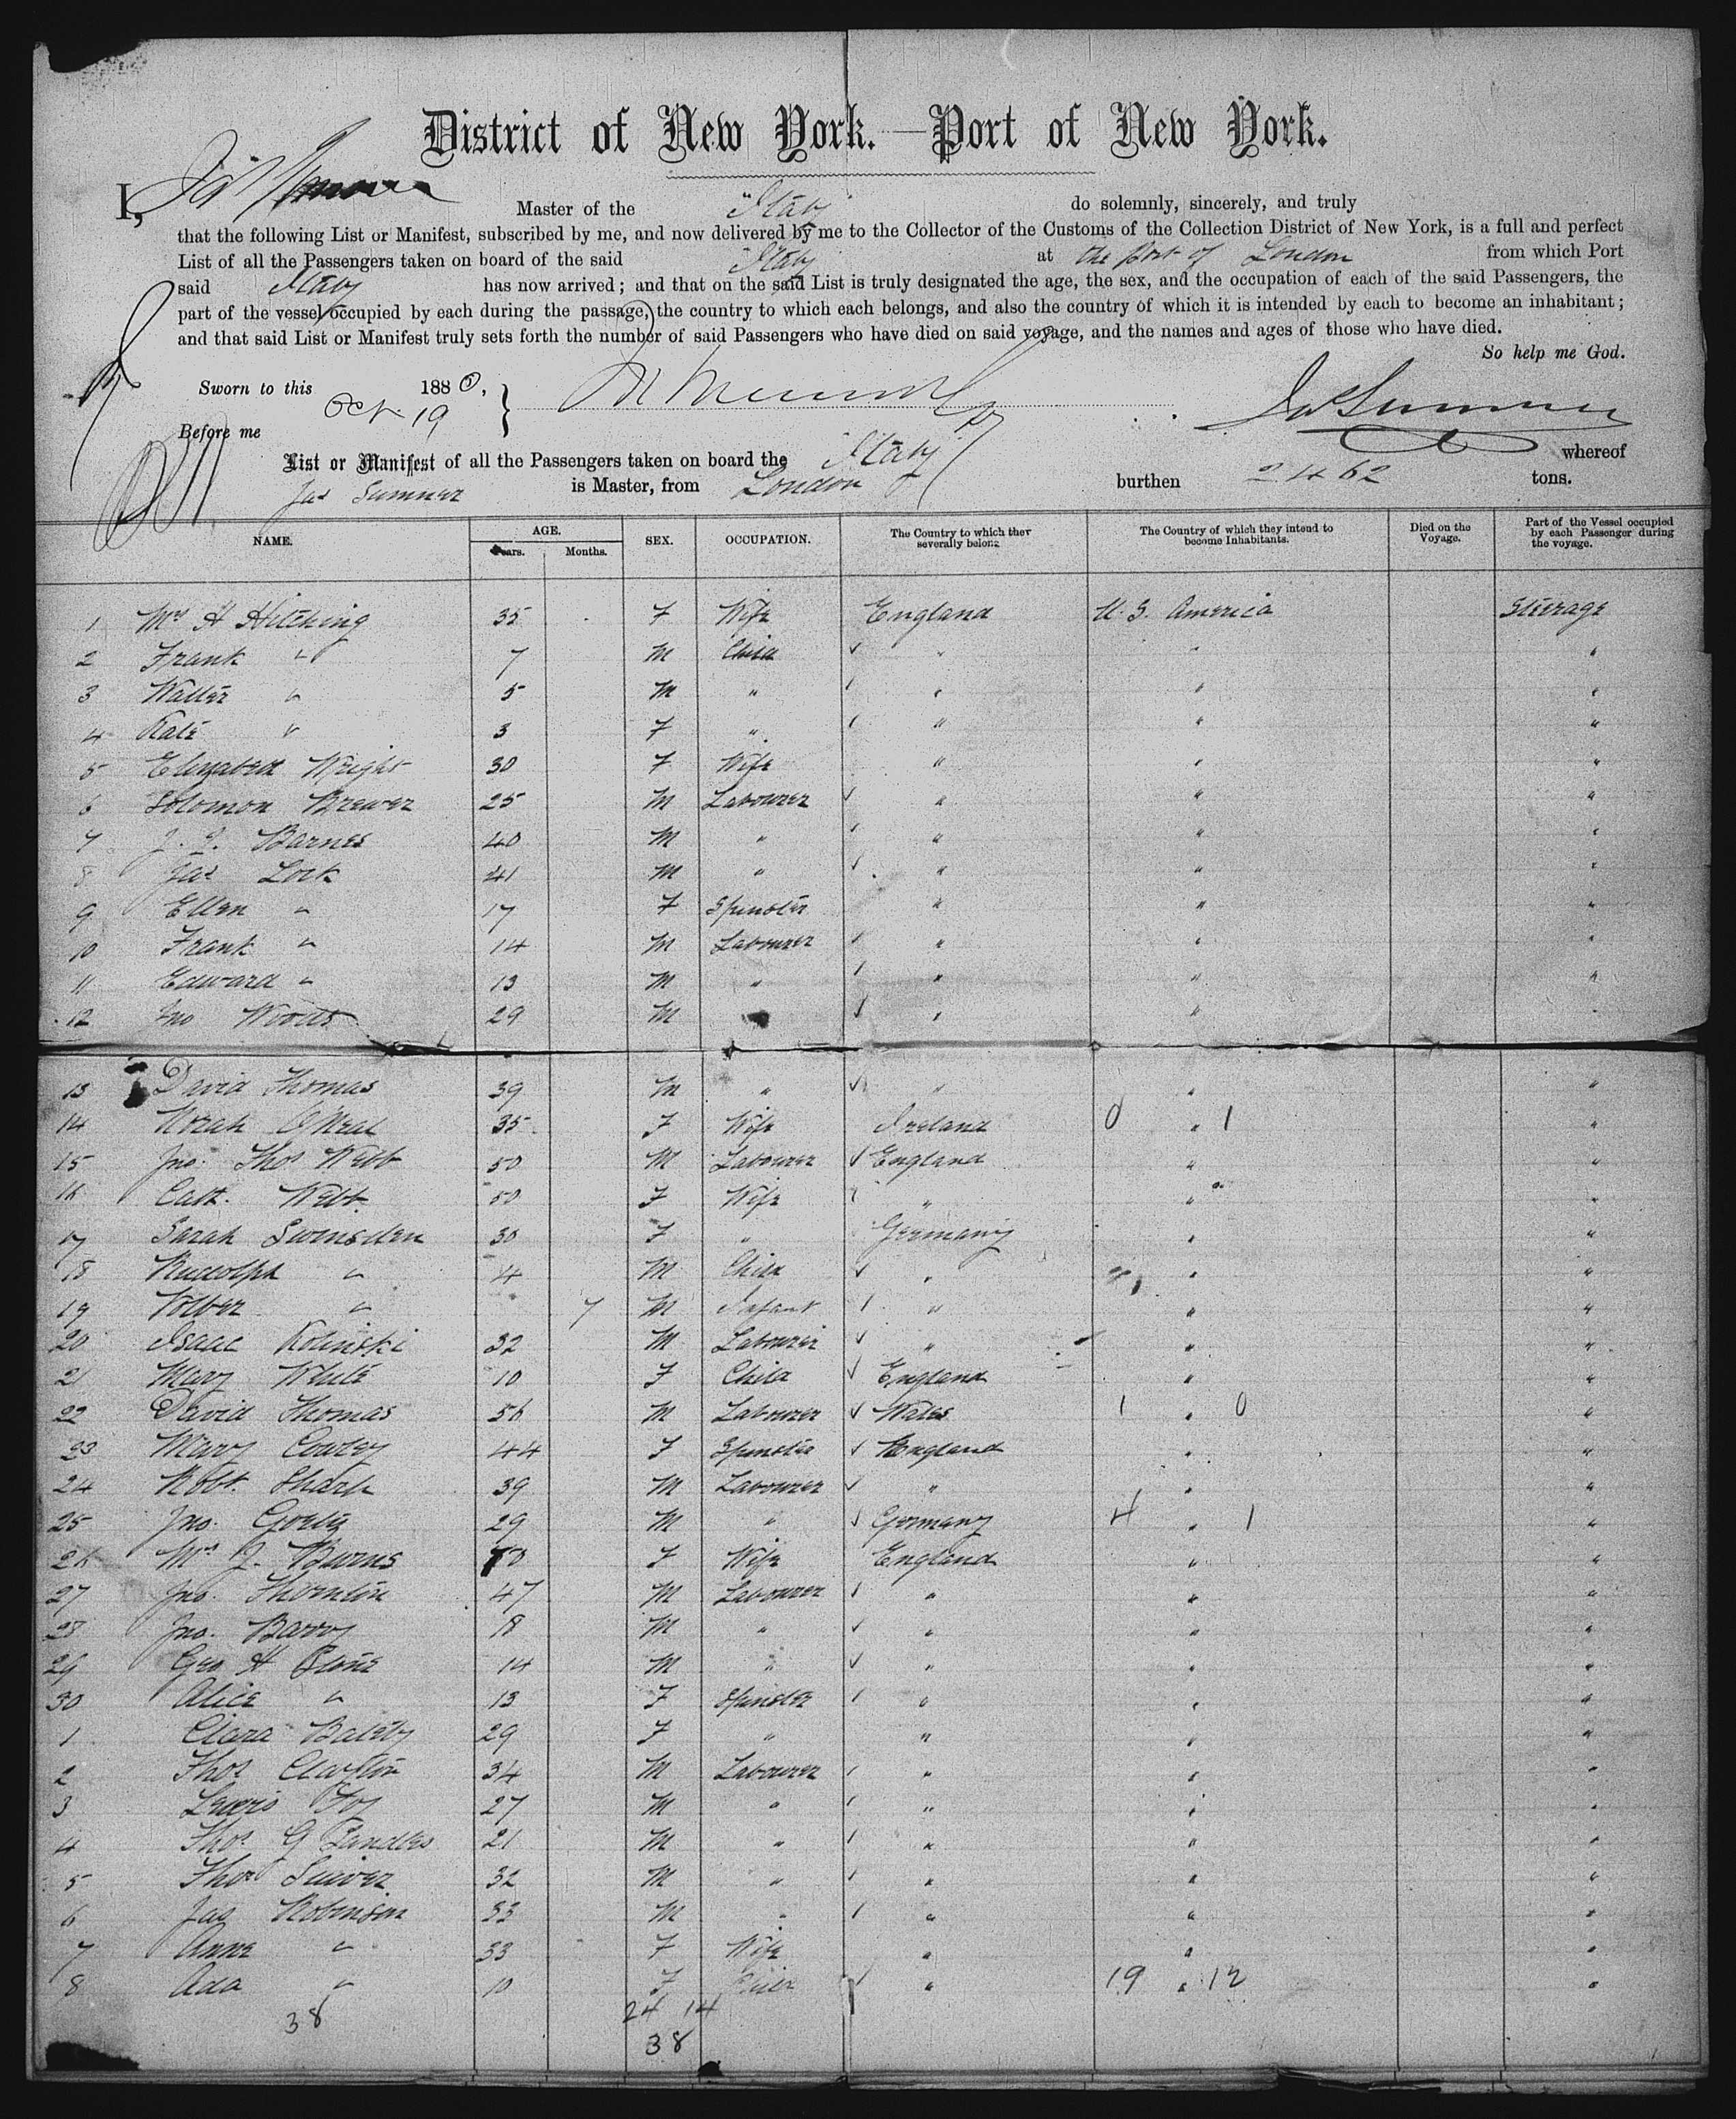 District of New York.—Port of New York.
I, Jas Sumner Master of the "Italy" do solemnly, sincerely, and truly
that the following List or Manifest, subscribed by me, and now delivered by me to the Collector of the Customs of the Collection District of New York, is a full and perfect
List of all the Passengers taken on board of the said Italy at the port of London from which Port
said Italy has now arrived; and that on the said List is truly designated the age, the sex, and the occupation of each of the said Passengers, the
part of the vessel occupied by each during the passage, the country to which each belongs, and also the country of which it is intended by each to become an inhabitant;
and that said List or Manifest truly sets forth the number of said Passengers who have died on said voyage, and the names and ages of those who have died.
So help me God.
Sworn to this Oct 19 1880, Jas Sumner
Before me
List or Manifest of all the Passengers taken on board the "Italy" whereof
Jas Sumner is Master, from London burthen 2462 tons.
NAME. AGE. Years. Months. SEX. OCCUPATION. The Country to which they severally belong. The Country of which they intend to become Inhabitants. Died on the Voyage. Part of the Vessel occupied by each Passenger during the voyage.
1 Mrs H Hitching 35 F Wife England U.S. America Steerage
2 Frank " 7 M Child " " "
3 Walter " 5 M " " " "
4 Kate " 3 F " " " "
5 Elizabeth Wright 30 F Wife " " "
6 Solomon Brewer 25 M Labourer " " "
7 J. J. Barnes 40 M " " " "
8 Jas Lock 41 M " " " "
9 Ellen " 17 F Spinster " " "
10 Frank " 14 M Labourer " " "
11 Edward " 13 M " " " "
12 Jno Woods 29 M " " "
13 David Thomas 39 M " " " "
14 Norah O'Neal 35 F Wife Ireland 0 " 1 "
15 Jno. Thos Webb 50 M Labourer England " "
16 Cath. Webb 50 F Wife " " "
17 Sarah Swensden 30 F " Germany " "
18 Rudolph " 4 M Child " " "
19 Volber " 7 M Infant " " "
20 Isaac Kolinski 32 M Labourer " " "
21 Mary White 10 F Child England " "
22 David Thomas 56 M Labourer Wales 1 " 0 "
23 Mary Cowley 44 F Spinster England " "
24 Robt. Sharp 39 M Labourer " " "
25 Jno. 29 M " Germany 4 " 1 "
26 Mrs J. Burns F Wife England " "
27 Jno. Thornton 47 M Labourer " " "
28 Jno. Barry 18 M " " " "
29 Geo H Stone 14 M " " " "
30 Alice " 13 F Spinster " " "
1 Clara 29 F " " " "
2 Thos Clayton 34 M Labourer " " "
3 Lewis Foy 27 M " " " "
4 Thos G Sandles 21 M " " " "
5 Thos 32 M " " " "
6 Jas Robinson 33 M " " " "
7 Anne " 33 F Wife " " "
8 Ada " 10 F Child " 19 " 12 "
38 24 14
38